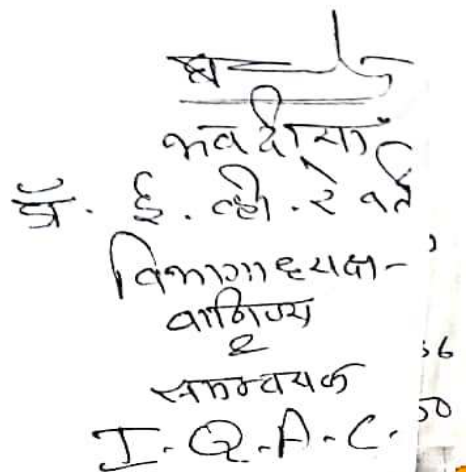 भवदीया
डॉ. ई. व्ही. रेवती
विभागाध्यक्ष-
वाणिज्य
&
समन्वयक
I.Q.A.C.